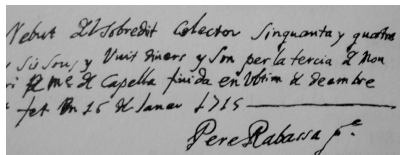 Rebut del sobredit Colector Sinquanta y quatre
y sis sous y Vuit diners y son per la tercia de Non
ri de Me de Capella finida en Ultim de deambre
fet en 15 de Janer 1715
Pere Rabassa pre